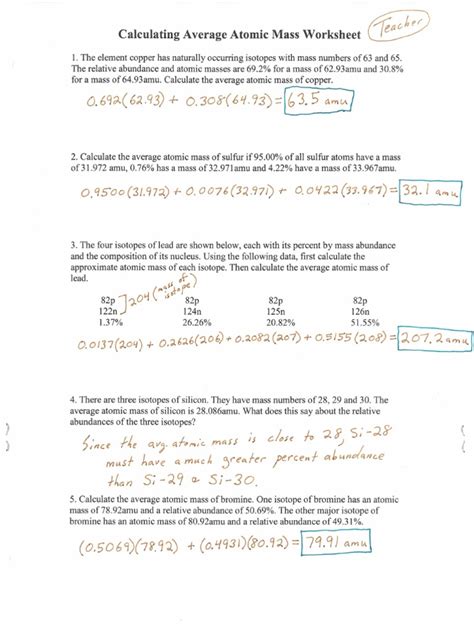 Calculating Average Atomic Mass Worksheet
Teacher
1. The element copper has naturally occurring isotopes with mass numbers of 63 and 65.
The relative abundance and atomic masses are 69.2% for a mass of 62.93amu and 30.8%
for a mass of 64.93amu. Calculate the average atomic mass of copper.
0.692(62.93) + 0.308(64.93) = 63.5 amu
2. Calculate the average atomic mass of sulfur if 95.00% of all sulfur atoms have a mass
of 31.972 amu, 0.76% has a mass of 32.971amu and 4.22% have a mass of 33.967amu.
0.9500(31.972) + 0.0076(32.971) + 0.0422(33.967) = 32.1 amu
3. The four isotopes of lead are shown below, each with its percent by mass abundance
and the composition of its nucleus. Using the following data, first calculate the
approximate atomic mass of each isotope. Then calculate the average atomic mass of
lead.
82p 82p 82p 82p
] 204 (mass of isotope)
122n 124n 125n 126n
1.37% 26.26% 20.82% 51.55%
0.0137(204) + 0.2626(206) + 0.2082(207) + 0.5155(208) = 207.2 amu
4. There are three isotopes of silicon. They have mass numbers of 28, 29 and 30. The
average atomic mass of silicon is 28.086amu. What does this say about the relative
abundances of the three isotopes?
Since the avg. atomic mass is close to 28, Si-28
must have a much greater percent abundance
than Si-29 & Si-30.
5. Calculate the average atomic mass of bromine. One isotope of bromine has an atomic
mass of 78.92amu and a relative abundance of 50.69%. The other major isotope of
bromine has an atomic mass of 80.92amu and a relative abundance of 49.31%.
(0.5069)(78.92) + (0.4931)(80.92) = 79.91 amu